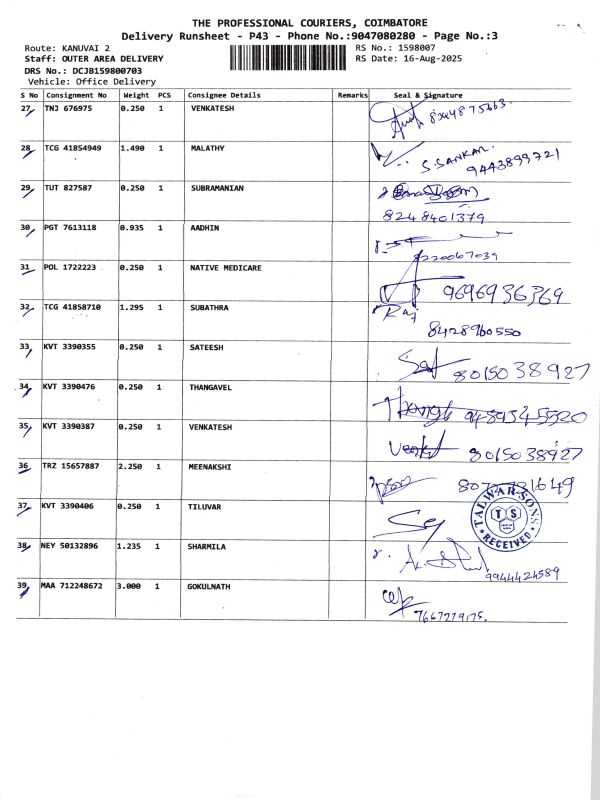 THE PROFESSIONAL COURIERS, COIMBATORE
Delivery Runsheet - P43 - Phone No.:9047080280 - Page No.:3
Route: KANUVAI 2 RS No.: 1598007
Staff: OUTER AREA DELIVERY RS Date: 16-Aug-2025
DRS No.: DCJB159800703
Vehicle: Office Delivery
S No Consignment No Weight PCS Consignee Details Remarks Seal & Signature
27 TNJ 676975 0.250 1 VENKATESH
28 TCG 41854949 1.490 1 MALATHY S.SANKAR.
9443899721
29 TUT 827587 0.250 1 SUBRAMANIAN
8248401379
30 PGT 7613118 0.935 1 AADHIN
8220067039
31 POL 1722223 0.250 1 NATIVE MEDICARE 9696936369
32 TCG 41858710 1.295 1 SUBATHRA Raj
8428960550
33 KVT 3390355 0.250 1 SATEESH Sat 8015038927
34 KVT 3390476 0.250 1 THANGAVEL
35 KVT 3390387 0.250 1 VENKATESH Venkt 8015038927
36 TRZ 15657887 2.250 1 MEENAKSHI
37 KVT 3390406 0.250 1 TILUVAR TALWAR SONS TS RECEIVED
38 NEY 50132896 1.235 1 SHARMILA
9944424589
39 MAA 712248672 3.000 1 GOKULNATH
7667279175.